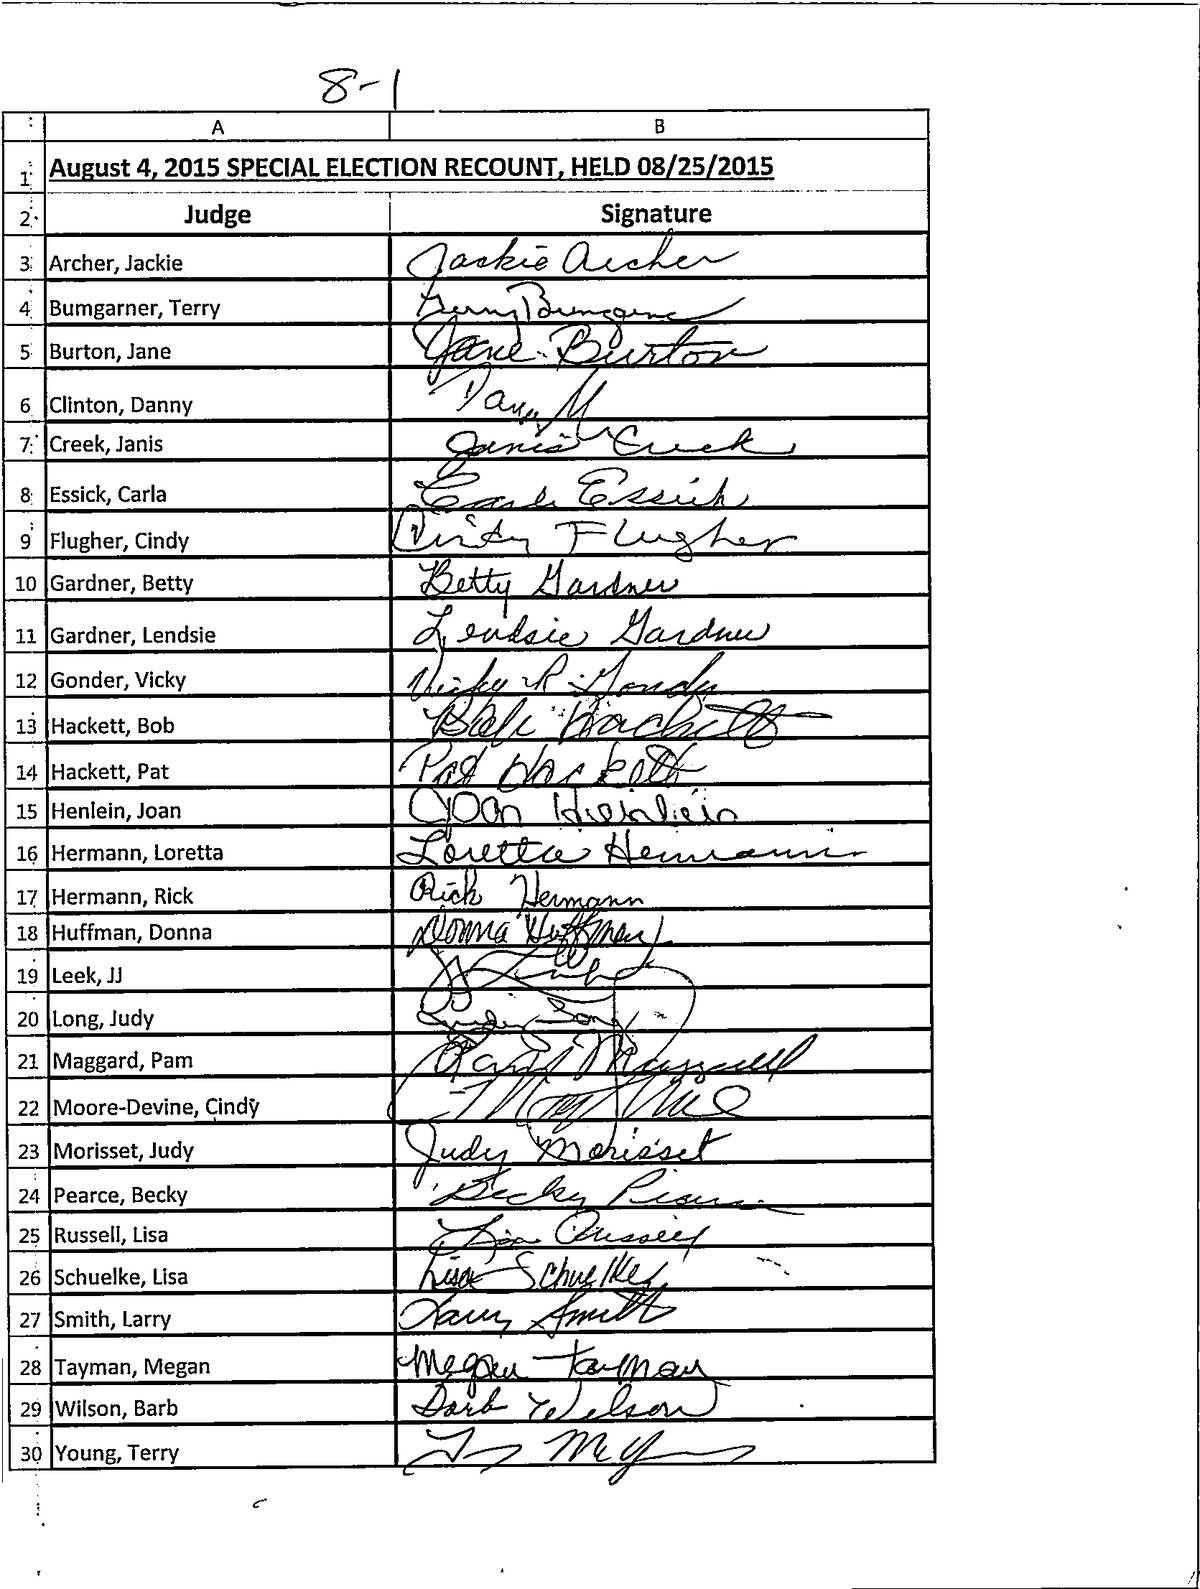 8-1
A B
1 August 4, 2015 SPECIAL ELECTION RECOUNT, HELD 08/25/2015
2 Judge Signature
3 Archer, Jackie Jackie Archer
4 Bumgarner, Terry Terry
5 Burton, Jane Jane Burton
6 Clinton, Danny
7 Creek, Janis Janis Creek
8 Essick, Carla Carla Essick
9 Flugher, Cindy Cindy Flugher
10 Gardner, Betty Betty Gardner
11 Gardner, Lendsie Lendsie Gardner
12 Gonder, Vicky Vicky R Gonder
13 Hackett, Bob Bob Hackett
14 Hackett, Pat Pat Hackett
15 Henlein, Joan Joan
16 Hermann, Loretta Loretta Hermann
17 Hermann, Rick Rick Hermann
18 Huffman, Donna Donna Huffman
19 Leek, JJ
20 Long, Judy Judy Long
21 Maggard, Pam Pam Maggard
22 Moore-Devine, Cindy
23 Morisset, Judy Judy Morisset
24 Pearce, Becky Becky Pearce
25 Russell, Lisa Lisa Russell
26 Schuelke, Lisa Lisa Schuelke
27 Smith, Larry Larry Smith
28 Tayman, Megan Megan Tayman
29 Wilson, Barb Barb Wilson
30 Young, Terry